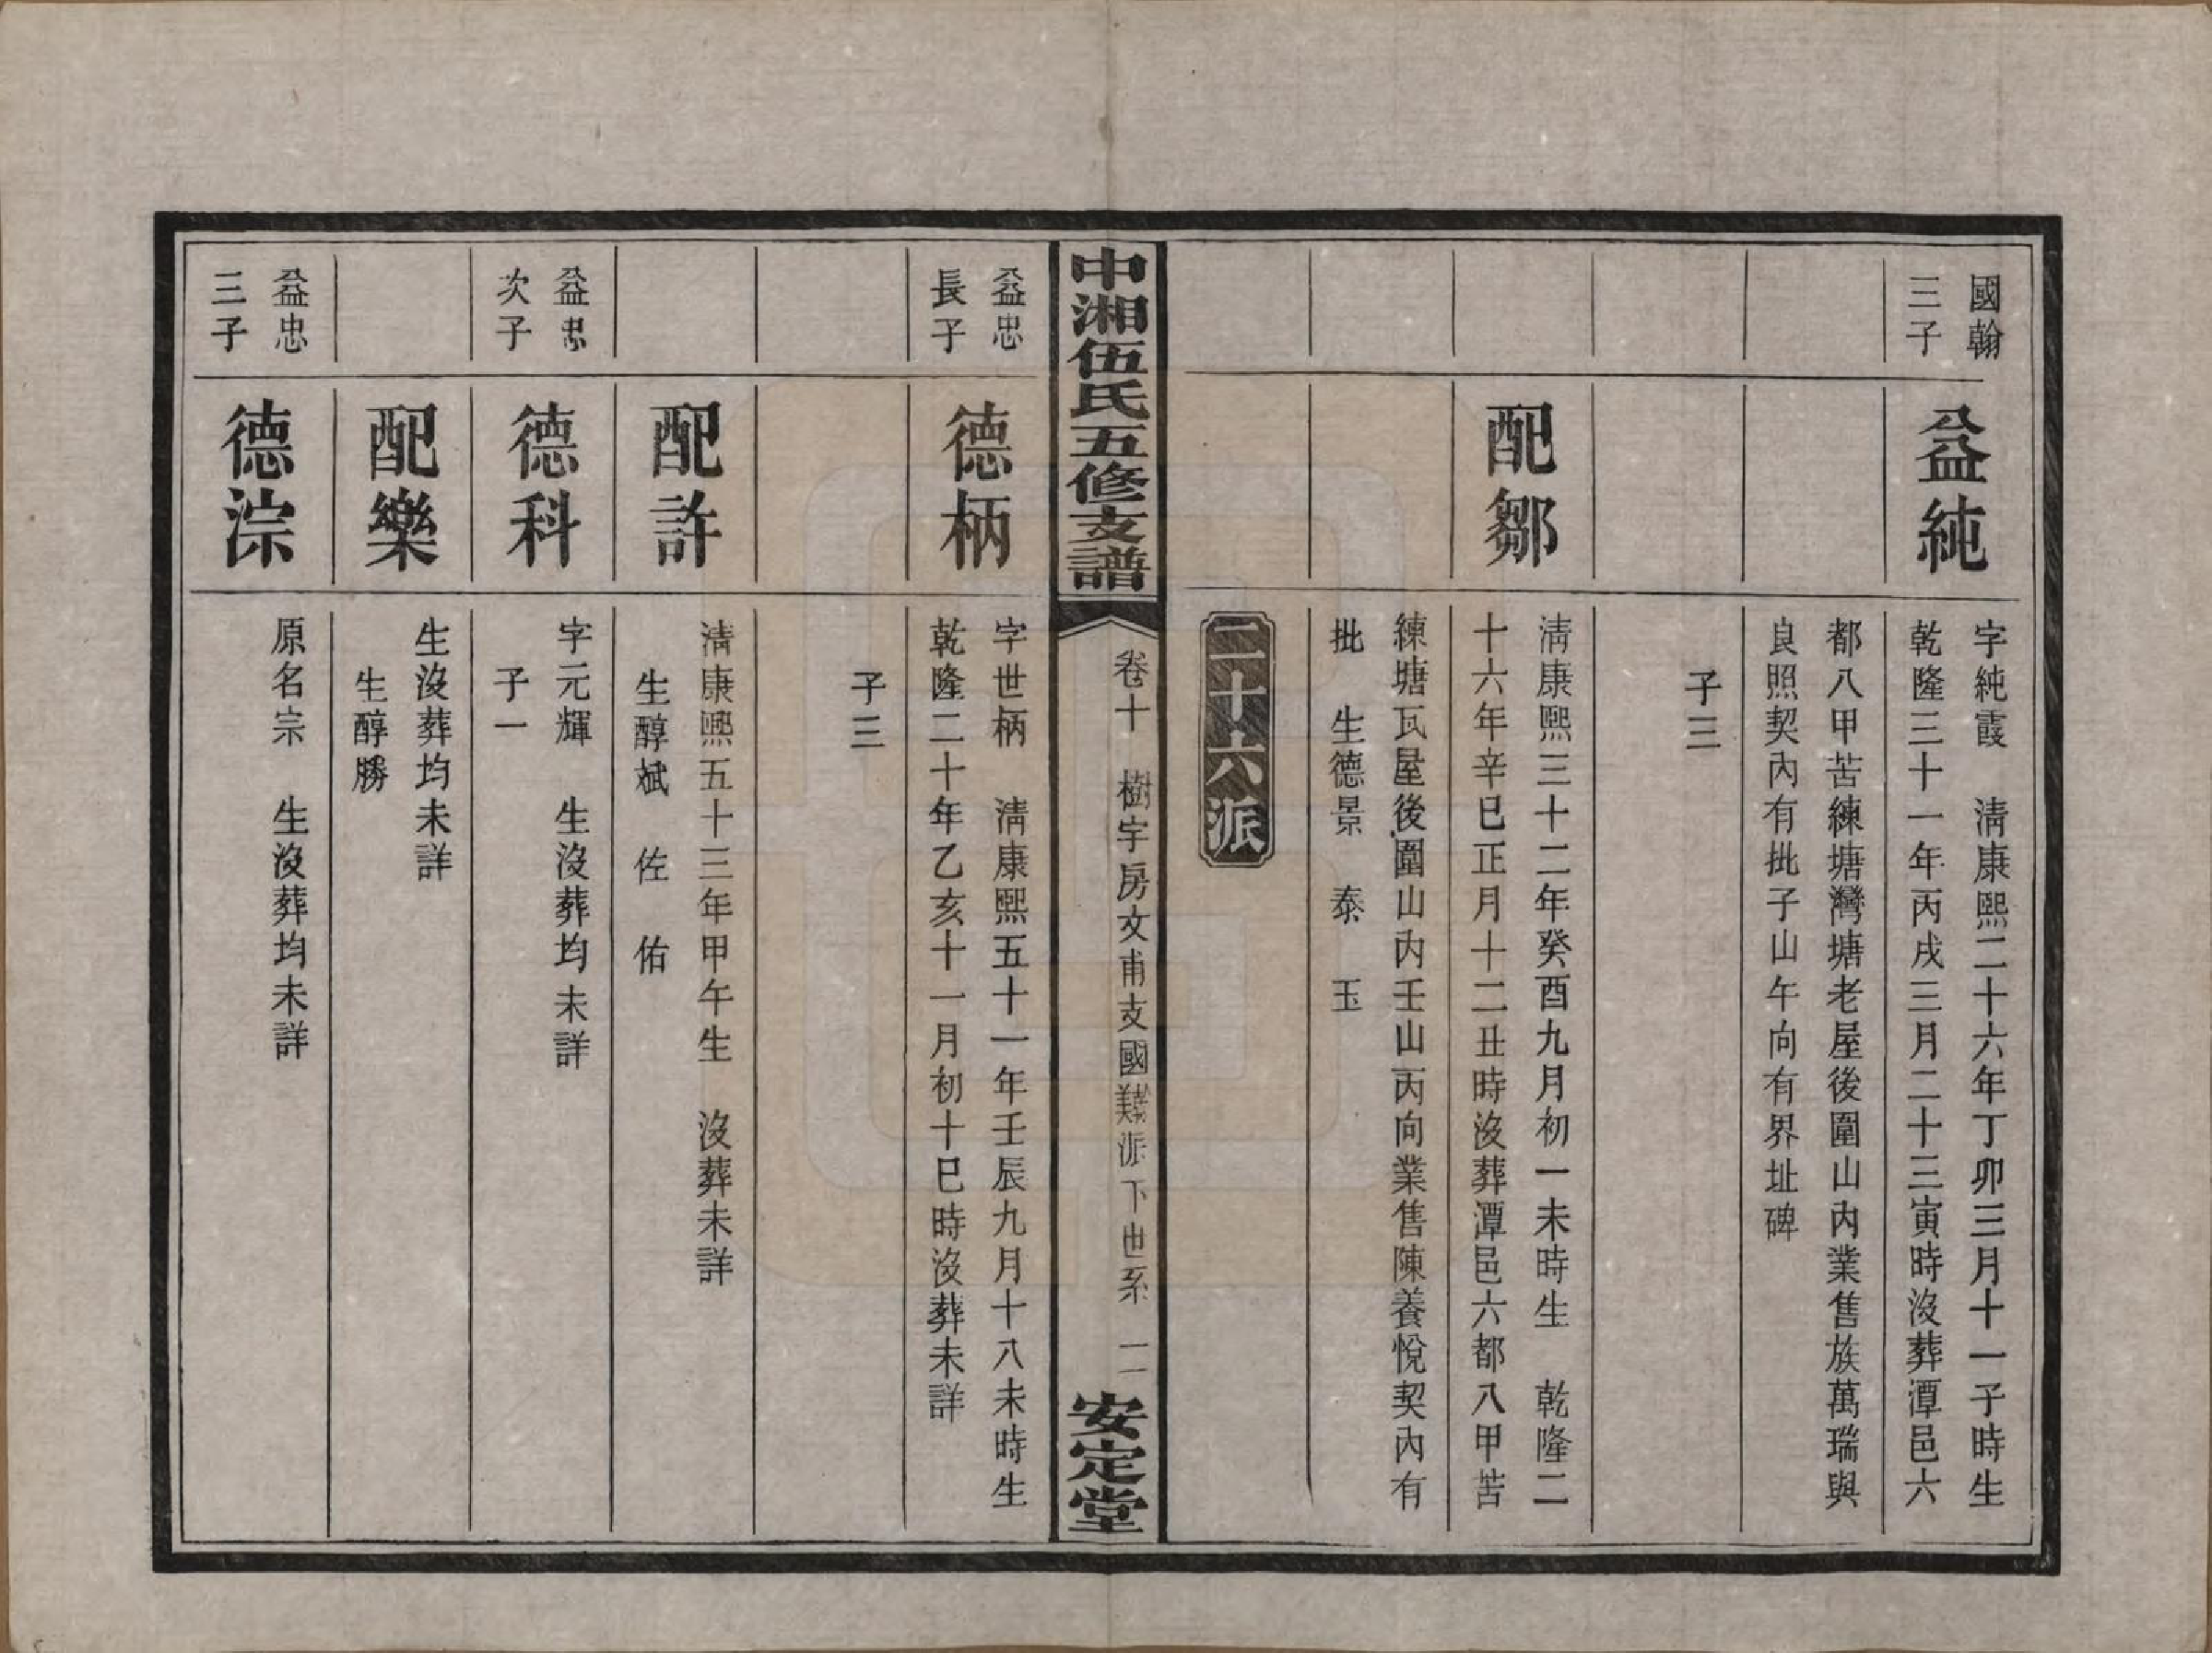 國翰
三子
益純
字純霞　清康熙二十六年丁卯三月十一子時生
乾隆三十一年丙戌三月二十三寅時沒葬潭邑六
都八甲苦練塘灣塘老屋後圍山內業售族萬瑞與
良照契內有批子山午向有界址碑
子三
配鄒
清康熙三十二年癸酉九月初一未時生　乾隆二
十六年辛巳正月十二丑時沒葬潭邑六都八甲苦
練塘瓦屋後圍山內壬山丙向業售陳養悅契內有
批　生德景　泰　玉
二十六派
中湘伍氏五修支譜
卷十　樹字房文甫支國派下世系　二
安定堂
益忠
長子
德柄
字世柄　清康熙五十一年壬辰九月十八未時生
乾隆二十年乙亥十一月初十巳時沒葬未詳
子三
配許
清康熙五十三年甲午生　沒葬未詳
生醇斌　佐　佑
益忠
次子
德科
字元輝　生沒葬均未詳
子一
配樂
生沒葬均未詳
生醇勝
益忠
三子
德淙
原名宗　生沒葬均未詳